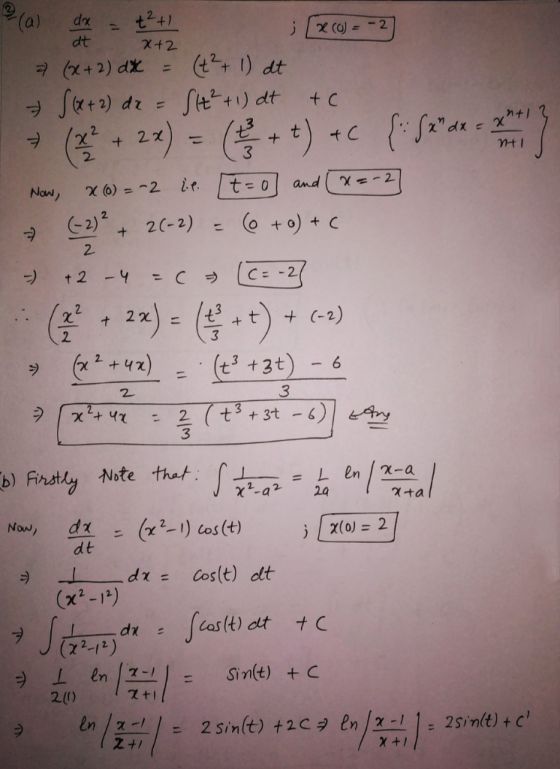 ② (a) dx/dt = t²+1/x+2 ; x(0) = -2
⇒ (x+2) dx = (t²+1) dt
⇒ ∫(x+2) dx = ∫(t²+1) dt + C
⇒ (x²/2 + 2x) = (t³/3 + t) + C {∵ ∫xⁿ dx = xⁿ⁺¹/n+1}
Now, x(0) = -2 i.e. t=0 and x=-2
⇒ (-2)²/2 + 2(-2) = (0+0) + C
⇒ +2 -4 = C ⇒ C = -2
∴ (x²/2 + 2x) = (t³/3 + t) + (-2)
⇒ (x²+4x)/2 = (t³+3t) - 6/3
⇒ x²+4x = 2/3 (t³+3t-6) ← Ans
(b) Firstly Note that: ∫ 1/x²-a² = 1/2a ln |x-a/x+a|
Now, dx/dt = (x²-1) cos(t) ; x(0) = 2
⇒ 1/(x²-1²) dx = cos(t) dt
⇒ ∫ 1/(x²-1²) dx = ∫cos(t) dt + C
⇒ 1/2(1) ln |x-1/x+1| = Sin(t) + C
⇒ ln |x-1/x+1| = 2 sin(t) + 2C ⇒ ln |x-1/x+1| = 2sin(t) + C'